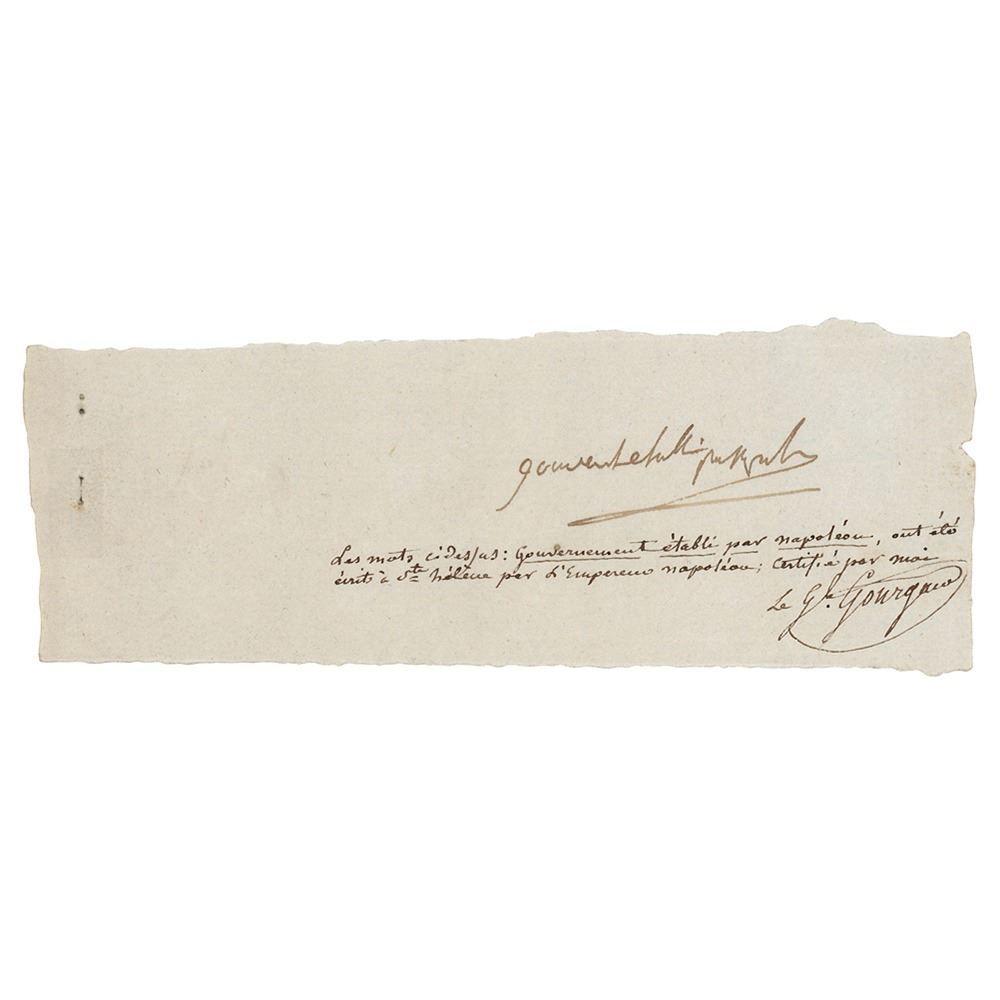 gouvent etabli par Nap
Les mots cidessus: Gouvernement établi par napoléon, ont été
écrits à Ste hélène par L'Empereur napoléon; Certifié par moi
Le Gl. Gourgaud